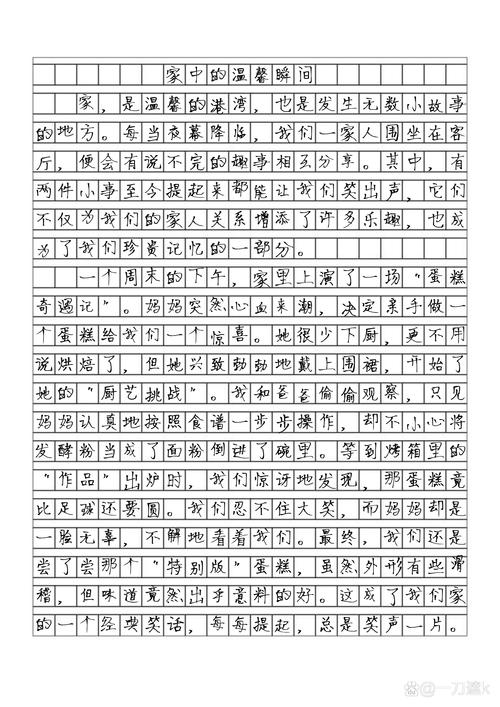 家中的温馨瞬间
家，是温馨的港湾，也是发生无数小故事
的地方。每当夜幕降临，我们一家人围坐在客
厅，便会有说不完的趣事相互分享。其中，有
两件小事至今提起来都能让我们笑出声，它们
不仅为我们的家人关系增添了许多乐趣，也成
为了我们珍贵记忆的一部分。
一个周末的下午，家里上演了一场“蛋糕
奇遇记”。妈妈突然心血来潮，决定亲手做一
个蛋糕给我们一个惊喜。她很少下厨，更不用
说烘焙了，但她兴致勃勃地戴上围裙，开始了
她的“厨艺挑战”。我和爸爸偷偷观察，只见
妈妈认真地按照食谱一步步操作，却不小心将
发酵粉当成了面粉倒进了碗里。等到烤箱里的
“作品”出炉时，我们惊讶地发现，那蛋糕竟
比足球还要圆。我们忍不住大笑，而妈妈却是
一脸无辜，不解地看着我们。最终，我们还是
尝了尝那个“特别版”蛋糕，虽然外形有些滑
稽，但味道竟然出乎意料的好。这成了我们家
的一个经典笑话，每每提起，总是笑声一片。
@一刀遥k